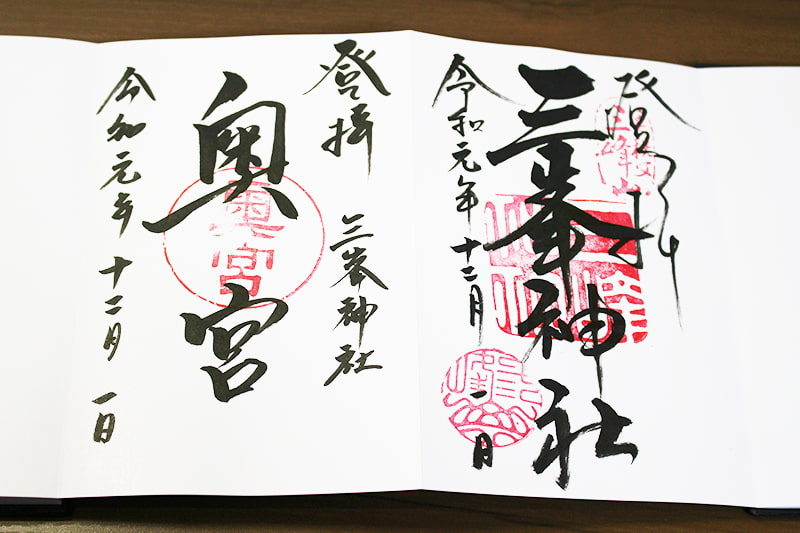 登拝
三峯神社
令和元年十二月一日
登拝
三峯神社
奥宮
奥宮
令和元年十二月一日